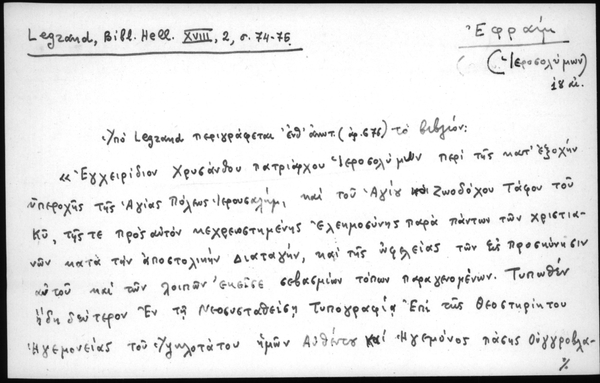 Legrand, Bibl. Hell. XVIII, 2, σ. 74-75.
Ἐφραὶμ
(Ἱεροσολύμων)
18 αἰ.
Ὑπὸ Legrand περιγράφεται ἐνθ' ἀνωτ. (ἀρ. 676) τὸ βιβλίον:
«Ἐγχειρίδιον Χρυσάνθου πατριάρχου Ἱεροσολύμων περὶ τῆς κατ' ἐξοχὴν
ὑπεροχῆς τῆς Ἁγίας Πόλεως Ἱερουσαλήμ, καὶ τοῦ Ἁγίου καὶ Ζωοδόχου Τάφου τοῦ
Κυ, τῆς τε πρὸς αὐτὸν κεχρεωστημένης Ἐλεημοσύνης παρὰ πάντων τῶν χριστια-
νῶν κατὰ τὴν ἀποστολικὴν Διαταγήν, καὶ τῆς ὠφελείας τῶν εἰς προσκύνησιν
αὐτοῦ καὶ τῶν λοιπῶν ἐκεῖσε σεβασμίων τόπων παραγενομένων. Τυπωθὲν
ἤδη δεύτερον Ἐν τῇ Νεοσυσταθείσῃ Τυπογραφίᾳ Ἐπὶ τῆς Θεοστηρίκτου
Ἡγεμονείας τοῦ Ὑψηλοτάτου ἡμῶν Αὐθέντου καὶ Ἡγεμόνος πάσης Οὐγγροβλα-
%